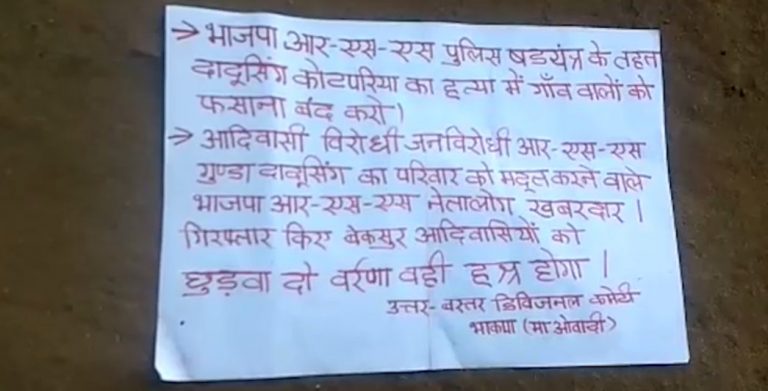 → भाजपा आर-एस-एस पुलिस षडयंत्र के तहत
दादूसिंग कोटपरिया का हत्या में गाँव वालों को
फसाना बंद करो।
→ आदिवासी विरोधी जनविरोधी आर-एस-एस
गुण्डा दादूसिंग का परिवार को मद्दत करने वाले
भाजपा आर-एस-एस नेतालोग खबरदार।
गिरफ्तार किए बेकसुर आदिवासियों को
छुड़वा दो वर्रणा वही हश्र होगा।
उत्तर-बस्तर डिविजनल कमेटी
भाकपा (माओवादी)